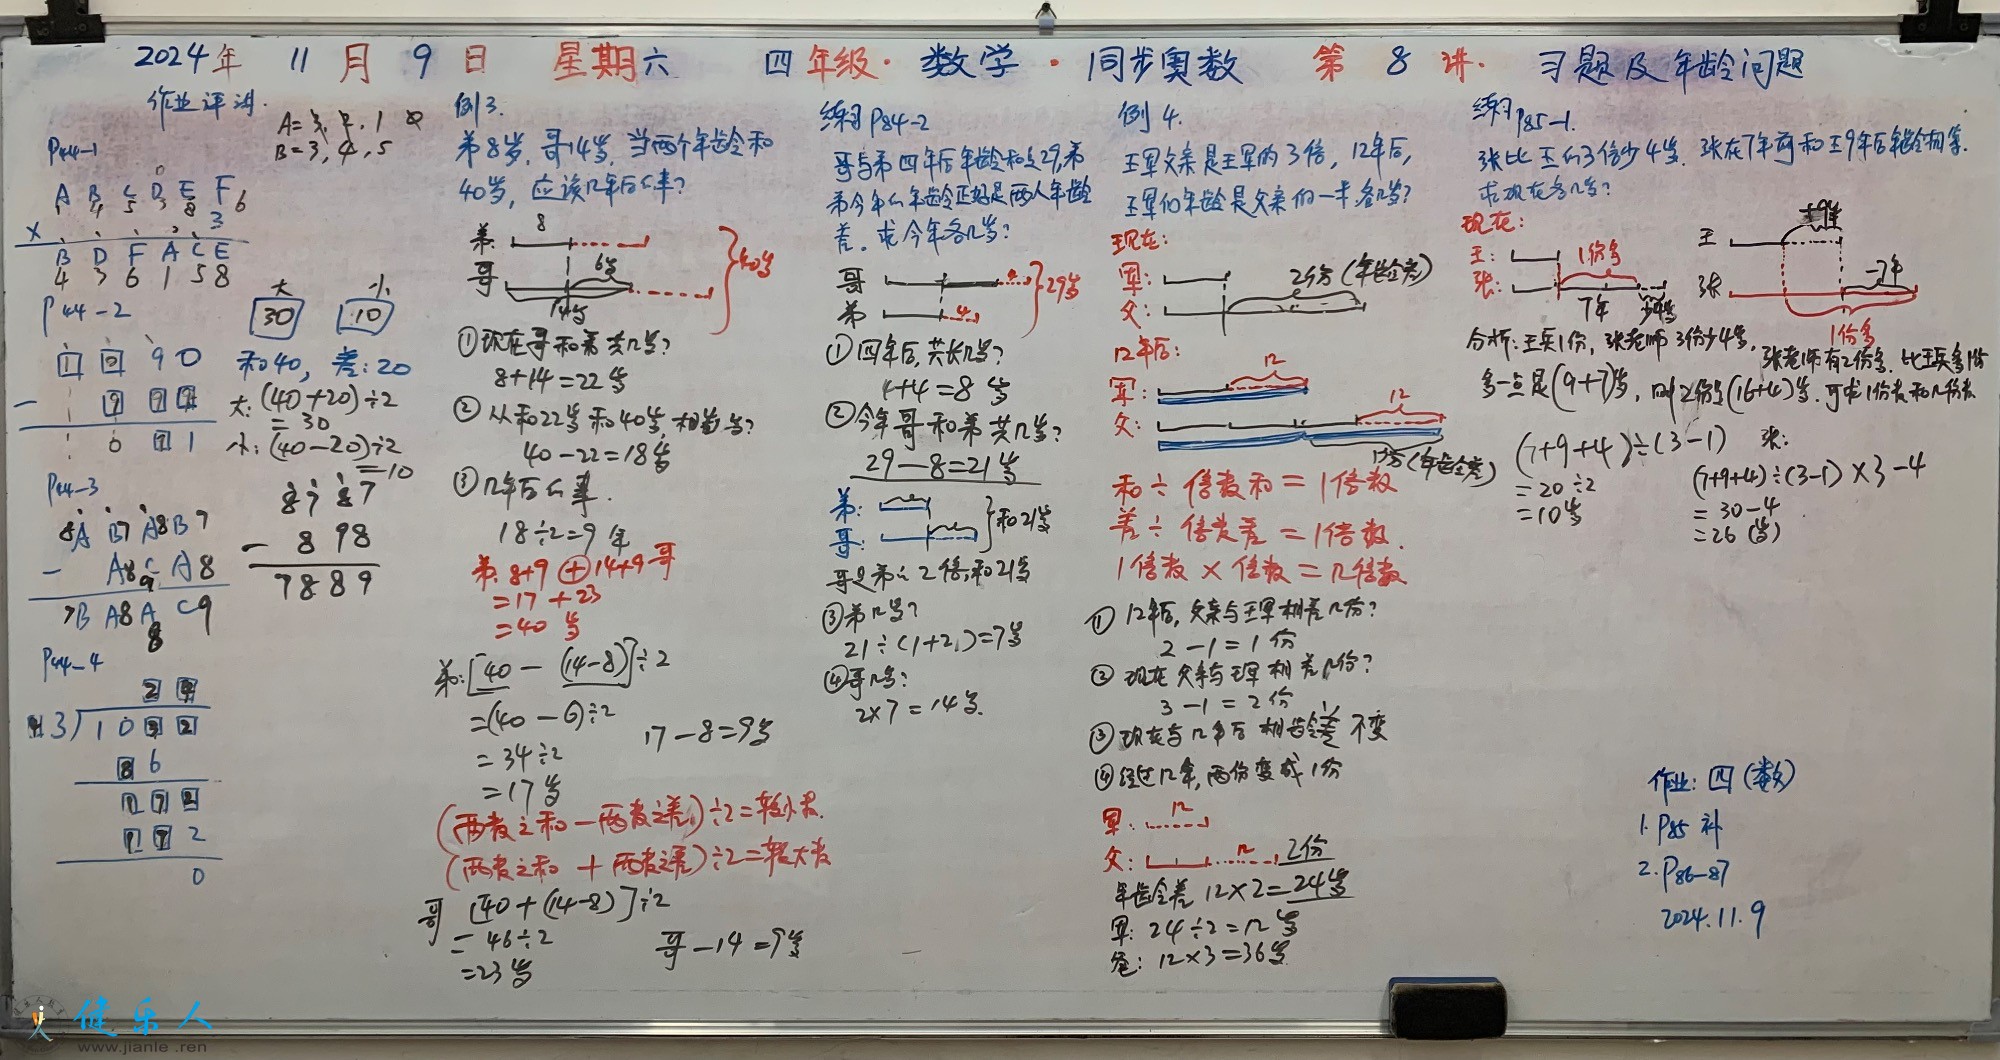 2024年 11月 9日 星期六 四年级·数学·同步奥数 第8讲·习题及年龄问题
作业评讲.
P44-1
A B C D E F
1 4 5 3 8 6
× 3
B D F A C E
4 3 6 1 5 8
P44-2
1 0 9 0
0 1
P44-3
A B7 A8 B7
- A8 C9 A8
7B A8 A8 C9
P44-4
2 4
43)1032
86
172
172
0
B=3, 4, 5
大 小
30 10
和40, 差:20
大:(40+20)÷2
=30
小:(40-20)÷2
=10
8787
- 898
7889
例3.
弟8岁,哥14岁,当两个年龄和
40岁,应该几年后的事?
弟: 8
哥 6岁
14岁
40岁
①现在哥和弟共几岁?
8+14=22岁
②从和22岁和40岁,相差岁?
40-22=18岁
③几年后的事.
18÷2=9年
弟:8+9 + 14+9 哥
=17+23
=40岁
弟:[40-(14-8)]÷2
=(40-6)÷2
=34÷2
=17岁
17-8=9岁
(两数之和-两数之差)÷2=较小数.
(两数之和+两数之差)÷2=较大数
哥 [40+(14-8)]÷2
=46÷2
=23岁
哥-14=9岁
练习P84-2
哥与弟四年后年龄和是29,弟
弟今年的年龄正好是两人年龄
差.求今年各几岁?
哥
弟 4
29岁
①四年后,共长几岁?
4+4=8岁
②今年哥和弟共几岁?
29-8=21岁
弟:
哥:
和21岁
哥是弟的2倍,和21岁
③弟几岁?
21÷(1+2)=7岁
④哥几岁?
2×7=14岁.
例4.
王军父亲是王军的3倍,12年后,
王军的年龄是父亲的一半.各几岁?
现在:
军:
父:
2份(年龄差)
12年后:
军: 12
父: 12
1份(年龄差)
和÷倍数和=1倍数
差÷倍数差=1倍数.
1倍数×倍数=几倍数
①12年后,父亲与王军相差几份?
2-1=1份
②现在父亲与王军相差几份?
3-1=2份
③现在与12年后相龄差不变
④经过12年,两份变成1份
军: 12
父: 12 2份
年龄差 12×2=24岁
军:24÷2=12岁
爸:12×3=36岁
练习P85-1.
张比王的3倍少4岁.张在7年前和王9年后年龄相等.
求现在各几岁?
现在:
王: 1份多
张: 7年 少4岁
王
张 -7年
1份多
分析:王兵1份,张老师3份少4岁,
张老师有2份多.比王兵多1份
多一点是(9+7)岁,则2份是(16+4)岁.可求1份数和几份数
(7+9+4)÷(3-1)
=20÷2
=10岁
张:
(7+9+4)÷(3-1)×3-4
=30-4
=26(岁)
作业:四(数)
1.P85 补
2.P86-87
2024.11.9
健乐人
www.jianle.ren